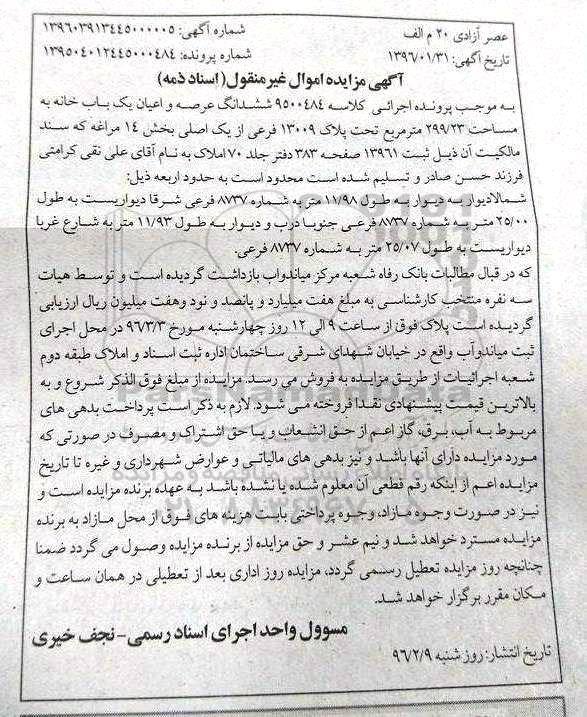 عصر آزادی ۲۰ م الف
شماره آگهی: ۱۳۹۶۰۳۹۱۳۴۴۵۰۰۰۰۰۵
تاریخ آگهی: ۱۳۹۶/۰۱/۳۱
شماره پرونده: ۱۳۹۵۰۴۰۱۲۴۴۵۰۰۰۴۸۴
آگهی مزایده اموال غیرمنقول (اسناد ذمه)
به موجب پرونده اجرائی کلاسه ۹۵۰۰۴۸۴ ششدانگ عرصه و اعیان یک باب خانه به
مساحت ۲۹۹/۲۳ مترمربع تحت پلاک ۱۳۰۰۹ فرعی از یک اصلی بخش ۱۴ مراغه که سند
مالکیت آن ذیل ثبت ۱۳۹۶۱ صفحه ۳۸۳ دفتر جلد ۷۰ املاک به نام آقای علی نقی کرامتی
فرزند حسن صادر و تسلیم شده است محدود است به حدود اربعه ذیل:
شمالادیوار به دیوار به طول ۱۱/۹۸ متر به شماره ۸۷۳۷ فرعی شرقا دیواریست به طول
۲۵/۰۰ متر به شماره ۸۷۳۷ فرعی جنوبا درب و دیوار به طول ۱۱/۹۳ متر به شارع غربا
دیواریست به طول ۲۵/۰۷ متر به شماره ۸۷۳۷ فرعی.
که در قبال مطالبات بانک رفاه شعبه مرکز میاندواب بازداشت گردیده است و توسط هیات
سه نفره منتخب کارشناسی به مبلغ هفت میلیارد و پانصد و نود وهفت میلیون ریال ارزیابی
گردیده است پلاک فوق از ساعت ۹ الی ۱۲ روز چهارشنبه مورخ ۹۶/۳/۳ در محل اجرای
ثبت میاندوآب واقع در خیابان شهدای شرقی ساختمان اداره ثبت اسناد و املاک طبقه دوم
شعبه اجرائیات از طریق مزایده به فروش می رسد. مزایده از مبلغ فوق الذکر شروع و به
بالاترین قیمت پیشنهادی نقدا فروخته می شود. لازم به ذکر است پرداخت بدهی های
مربوط به آب، برق، گاز اعم از حق انشعاب و یا حق اشتراک و مصرف در صورتی که
مورد مزایده دارای آنها باشد و نیز بدهی های مالیاتی و عوارض شهرداری و غیره تا تاریخ
مزایده اعم از اینکه رقم قطعی آن معلوم شده یا نشده باشد به عهده برنده مزایده است و
نیز در صورت وجوه مازاد، وجوه پرداختی بابت هزینه های فوق از محل مازاد به برنده
مزایده مسترد خواهد شد و نیم عشر و حق مزایده از برنده مزایده وصول می گردد ضمنا
چنانچه روز مزایده تعطیل رسمی گردد، مزایده روز اداری بعد از تعطیلی در همان ساعت و
مکان مقرر برگزار خواهد شد.
مسوول واحد اجرای اسناد رسمی- نجف خیری
تاریخ انتشار: روز شنبه ۹۶/۲/۹